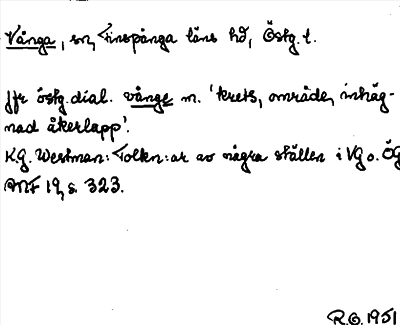 Vånga, sn, Finspånga läns hd, Östg. l.
Jfr östg. dial. vånge m. 'krets, område, inhäg-
nad åkerlapp'.
K.G. Westman: Tolkn:ar av några ställen i VG o. ÖG
ANF 19, s. 323.
R.O. 1951